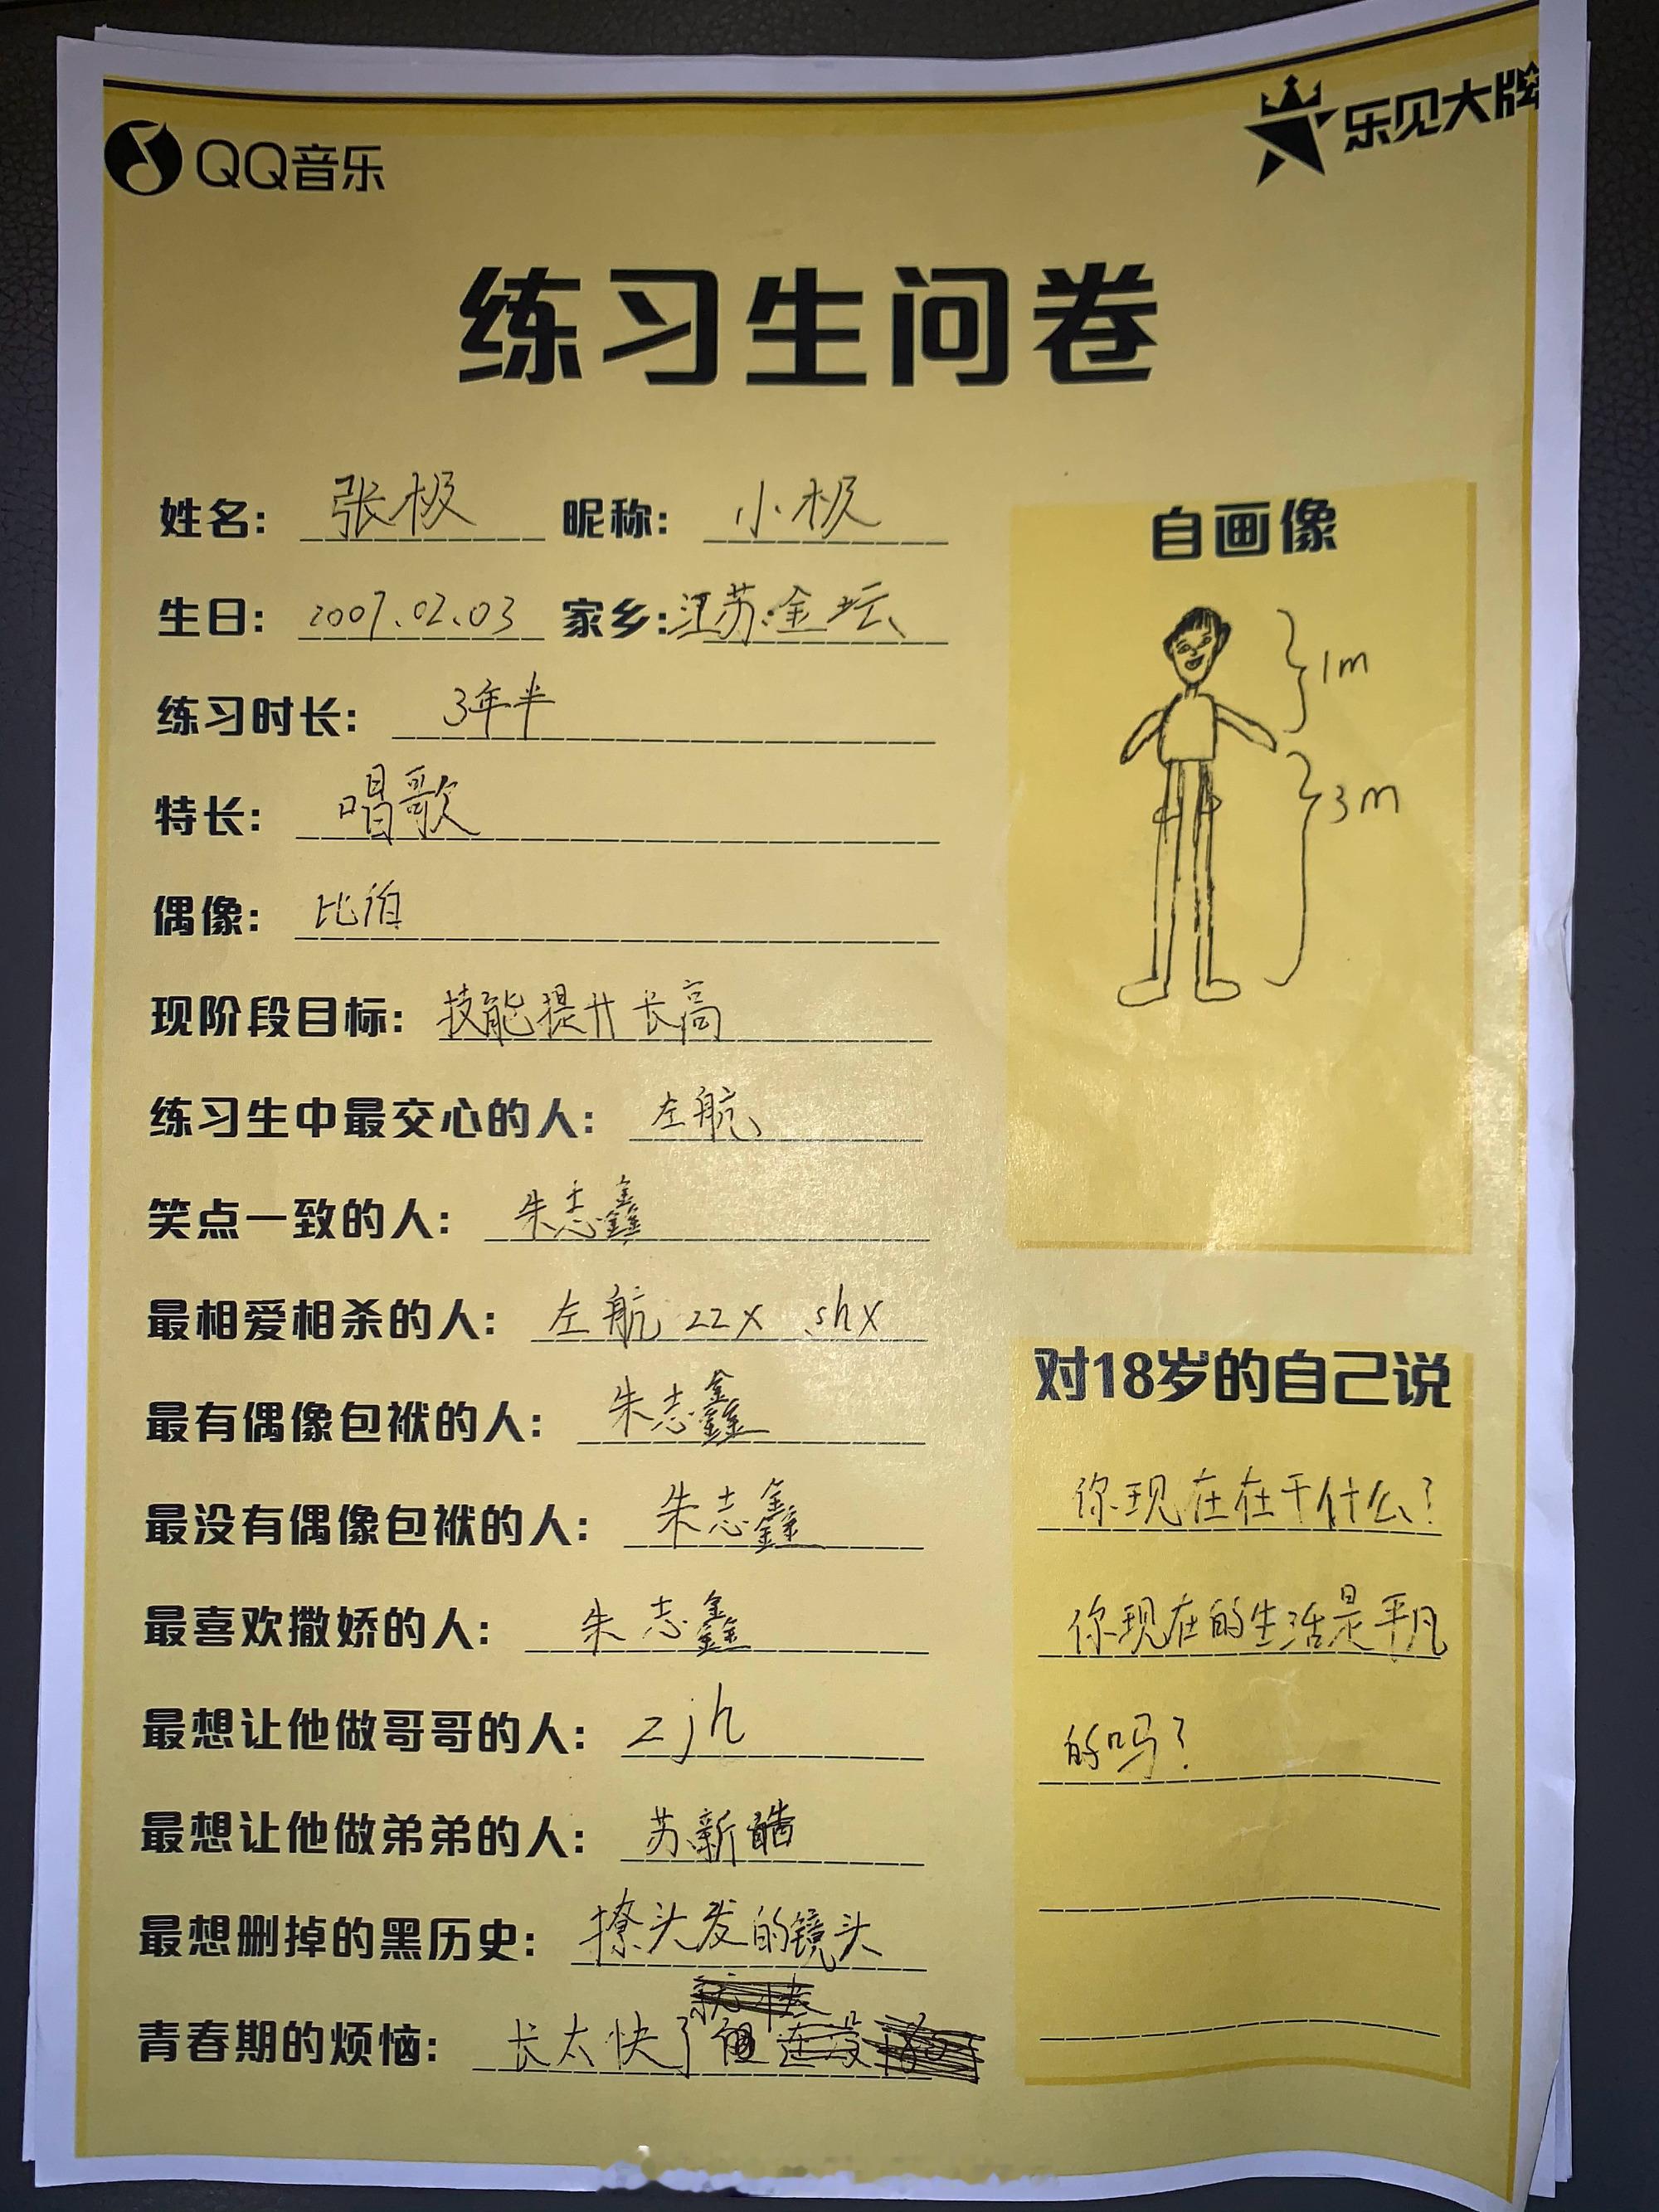 QQ音乐
乐见大牌
练习生问卷
姓名: 张极 昵称: 小极
生日: 2007.02.03 家乡: 江苏·金坛
练习时长: 3年半
特长: 唱歌
偶像: 比伯
现阶段目标: 技能提升 长高
练习生中最交心的人: 左航
笑点一致的人: 朱志鑫
最相爱相杀的人: 左航 zzx shx
最有偶像包袱的人: 朱志鑫
最没有偶像包袱的人: 朱志鑫
最喜欢撒娇的人: 朱志鑫
最想让他做哥哥的人: zjh
最想让他做弟弟的人: 苏新皓
最想删掉的黑历史: 撩头发的镜头
青春期的烦恼: 长太快了
自画像
1m
3m
对18岁的自己说
你现在在干什么?
你现在的生活是平凡
的吗?